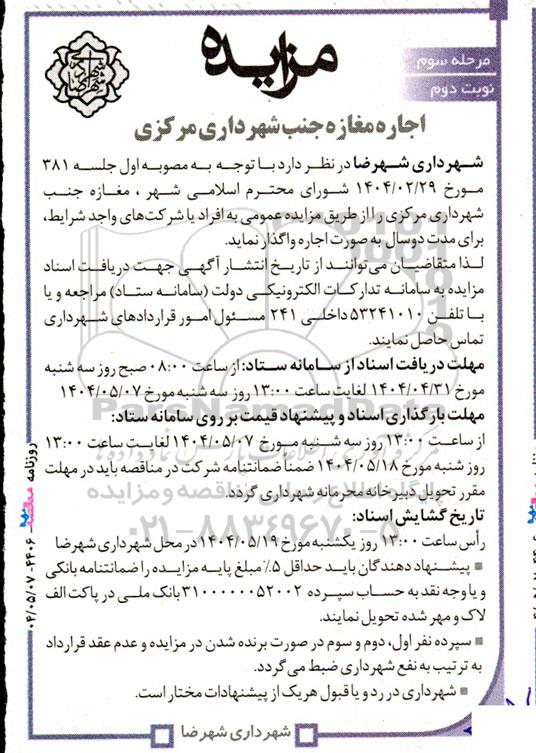 مزایده
مرحله سوم
نوبت دوم
اجاره مغازه جنب شهرداری مرکزی
شهرداری شهرضا در نظر دارد با توجه به مصوبه اول جلسه ۳۸۱
مورخ ۱۴۰۴/۰۲/۲۹ شورای محترم اسلامی شهر ، مغازه جنب
شهرداری مرکزی را از طریق مزایده عمومی به افراد یا شرکت‌های واجد شرایط،
برای مدت دو سال به صورت اجاره واگذار نماید.
لذا متقاضیان می‌توانند از تاریخ انتشار آگهی جهت دریافت اسناد
مزایده به سامانه تدارکات الکترونیکی دولت (سامانه ستاد) مراجعه و یا
با تلفن ۵۳۲۴۱۰۱۰ داخلی ۲۴۱ مسئول امور قراردادهای شهرداری
تماس حاصل نمایند.
مهلت دریافت اسناد از سامانه ستاد: از ساعت ۰۸:۰۰ صبح روز سه شنبه
مورخ ۱۴۰۴/۰۴/۳۱ لغایت ساعت ۱۳:۰۰ روز سه شنبه مورخ ۱۴۰۴/۰۵/۰۷
مهلت بارگذاری اسناد و پیشنهاد قیمت بر روی سامانه ستاد:
از ساعت ۱۳:۰۰ روز سه شنبه مورخ ۱۴۰۴/۰۵/۰۷ لغایت ساعت ۱۳:۰۰
روز شنبه مورخ ۱۴۰۴/۰۵/۱۸ ضمناً ضمانتنامه شرکت در مناقصه باید در مهلت
مقرر تحویل دبیرخانه محرمانه شهرداری گردد.
تاریخ گشایش اسناد:
رأس ساعت ۱۳:۰۰ روز یکشنبه مورخ ۱۴۰۴/۰۵/۱۹ در محل شهرداری شهرضا
■ پیشنهاد دهندگان باید حداقل ۵٪ مبلغ پایه مزایده را ضمانتنامه بانکی
و یا وجه نقد به حساب سپرده ۳۱۰۰۰۰۰۰۵۲۰۰۲ بانک ملی در پاکت الف
لاک و مهر شده تحویل نمایند.
■ سپرده نفر اول، دوم و سوم در صورت برنده شدن در مزایده و عدم عقد قرارداد
به ترتیب به نفع شهرداری ضبط می‌گردد.
■ شهرداری در رد و یا قبول هر یک از پیشنهادات مختار است.
شهرداری شهرضا
روزنامه مناقصه - ۴۴۰۶ - ۰۴/۰۵/۰۷
ParsNamadData
۰۲۱-۸۸۳۴۹۶۷۰-۵